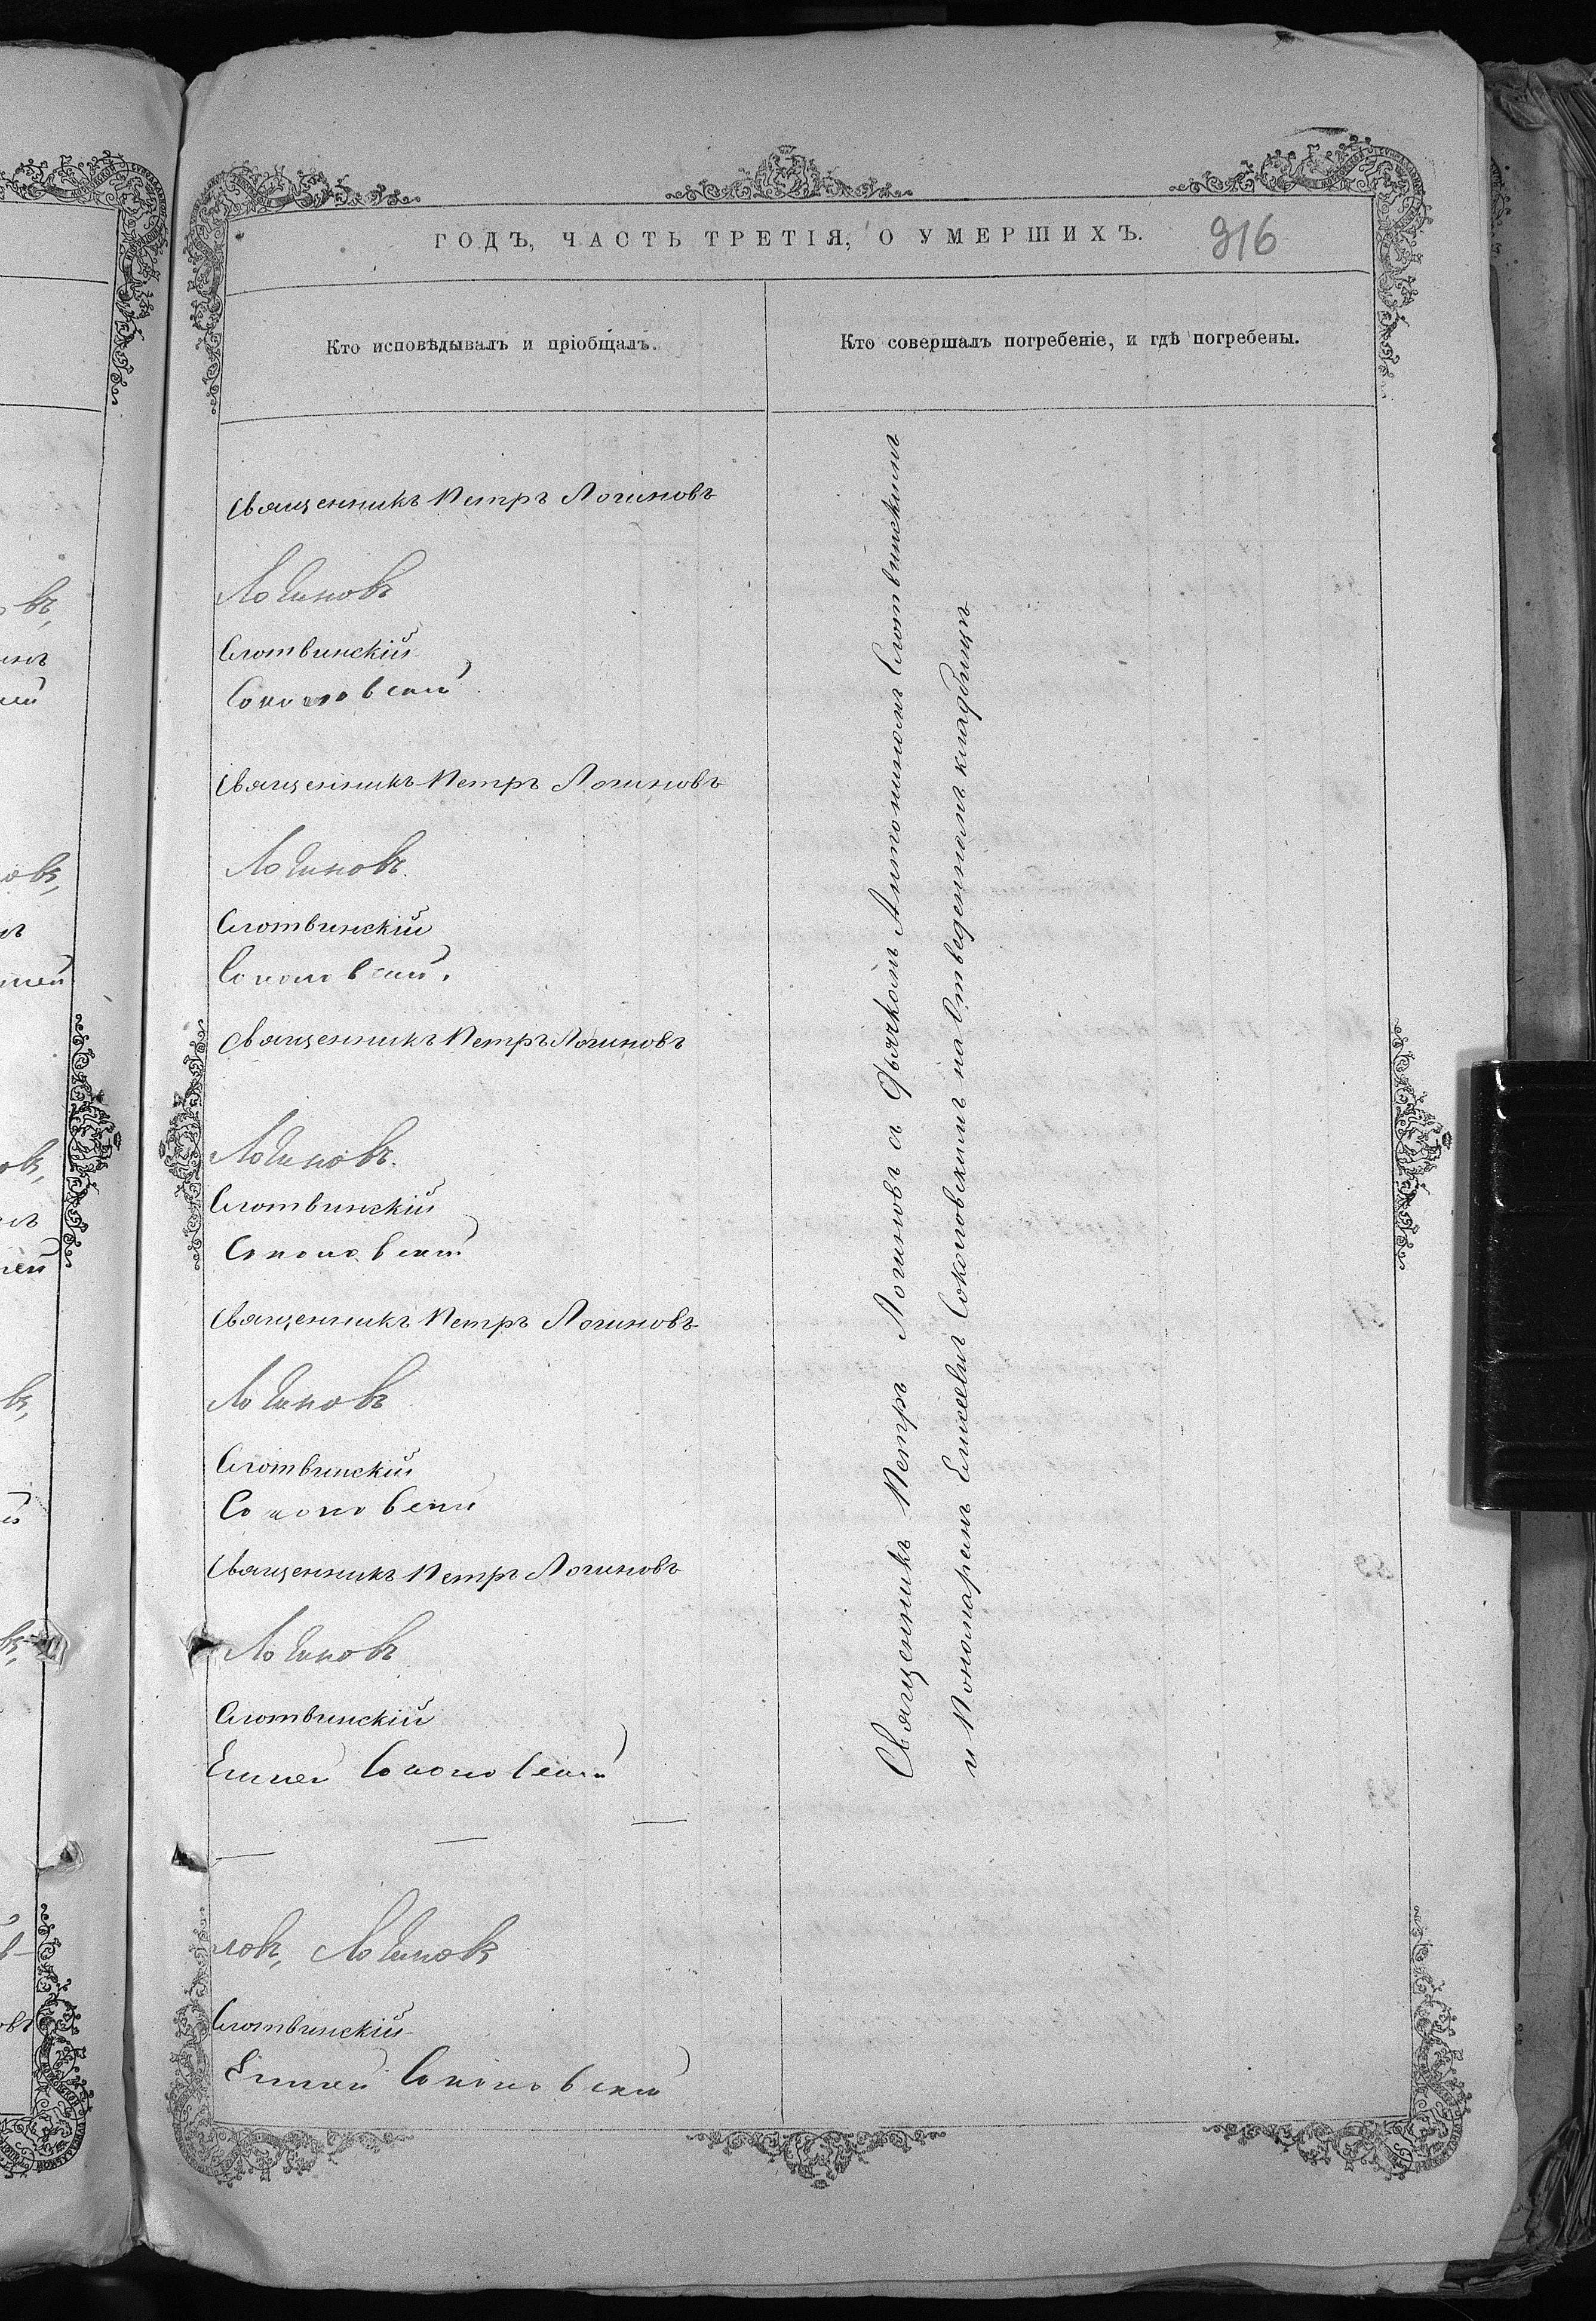 ГОДЪ, ЧАСТЬ ТРЕТІЯ, О УМЕРШИХЪ.
916
Кто исповѣдывалъ и пріобщалъ.
Кто совершалъ погребеніе, и гдѣ погребены.
Священникъ Петръ Логиновъ
Логиновъ
Слотвинскій
Соколовскій
Священникъ Петръ Логиновъ
Логиновъ.
Слотвинскій
Соколовскій.
Священникъ Петръ Логиновъ
Логиновъ.
Слотвинскій
Соколовскій
Священникъ Петръ Логиновъ
Логиновъ
Слотвинскій
Соколовскій
Священникъ Петръ Логиновъ
Логиновъ
Слотвинскій
Елисей Соколовскій
ловъ, Логиновъ
Слотвинскій
Елисей Соколовскій
Священникъ Петръ Логиновъ съ Дьячкомъ Антониномъ Слотвинскимъ
и Пономаремъ Елисеемъ Соколовскимъ на Отведенномъ кладбищѣ